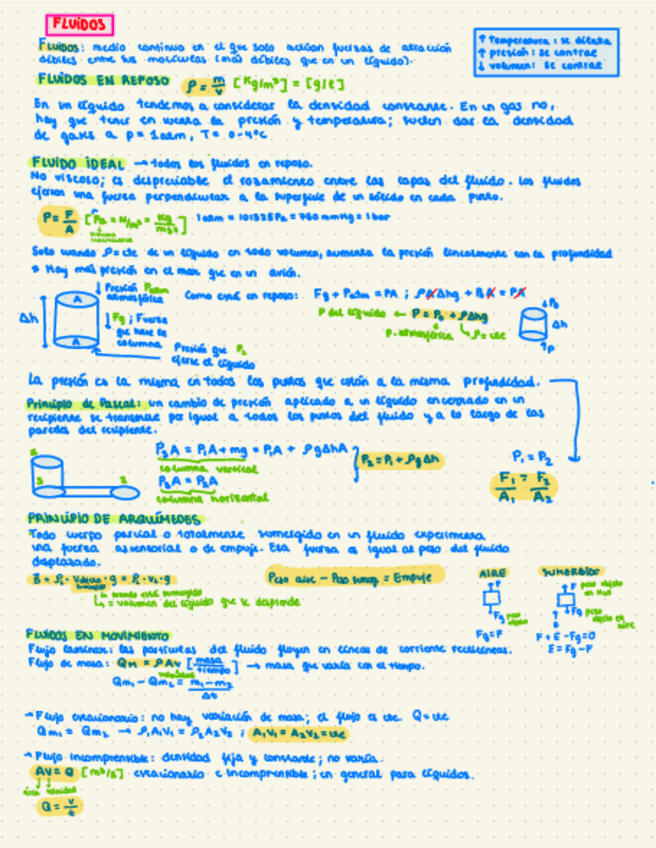 FLUÍDOS
FLUIDOS: medio continuo en el que solo actúan fuerzas de atracción
débiles entre sus moléculas (más débiles que en un líquido).
↑ Temperatura: se dilata
↑ presión: se contrae
↓ volumen: se contrae
FLUÍDOS EN REPOSO ρ = m/v [Kg/m³] = [g/l]
En un líquido tendemos a considerar la densidad constante. En un gas no,
hay que tener en cuenta la presión y temperatura; suelen dar la densidad
de gases a p = 1 atm, T = 0-4°C
FLUÍDO IDEAL → todos los fluidos en reposo.
No viscoso; es despreciable el rozamiento entre las capas del fluido. Los fluidos
ejercen una fuerza perpendicular a la superficie de un sólido en cada punto.
P = F/A [Pa = N/m² = Kg/ms²] 1 atm = 101325 Pa = 760 mmHg = 1 bar
Solo cuando ρ = cte de un líquido en todo volumen, aumenta la presión linealmente con la profundidad
* Hay más presión en el mar que en un avión.
Δh
A
A
↓ Presión Patm
atmosférica
↓ Fg; Fuerza
que hace la
columna
Presión que
ejerce el líquido
Como está en reposo: Fg + Patm = PA ; ρAΔhg + P₀A = PA
P del líquido ← P = P₀ + ρΔhg
P. atmosférica ρ = cte
↓ P₀
Δh
↑P
La presión es la misma en todos los puntos que están a la misma profundidad.
Principio de Pascal: un cambio de presión aplicado a un líquido encerrado en un
recipiente se transmite por igual a todos los puntos del fluido y a lo largo de las
paredes del recipiente.
3
2
P₃A = P₁A + mg = P₁A + ρgΔhA
columna vertical
P₃A = P₂A
columna horizontal
P₂ = P₁ + ρgΔh
P₁ = P₂
F₁/A₁ = F₂/A₂
PRINCIPIO DE ARQUÍMEDES
Todo cuerpo parcial o totalmente sumergido en un fluido experimenta
una fuerza ascensorial o de empuje. Esa fuerza es igual al peso del fluido
desplazado.
= volumen del líquido que se desprende
Peso aire - Peso sumerg = Empuje
AIRE
F
Fg
peso
objeto
Fg = F
SUMERGIDO
F peso objeto
en H₂O
Fg peso
objeto en
aire
E
F + E - Fg = 0
E = Fg - F
FLUÍDOS EN MOVIMIENTO
Flujo laminar: las partículas del fluido fluyen en líneas de corriente rectilíneas.
Flujo de masa: Qm = ρAv [masa/tiempo] → masa que varía con el tiempo.
velocidad
Qm₁ - Qm₂ = m₁-m₂/Δt
→ Flujo estacionario: no hay variación de masa; el flujo es cte Q = cte
Qm₁ = Qm₂ → ρ₁A₁V₁ = ρ₂A₂V₂ ; A₁V₁ = A₂V₂ = cte
→ Flujo incomprensible: densidad fija y constante; no varía.
AV = Q [m³/s] estacionario e incomprensible; en general para líquidos.
área velocidad
Q = V/t